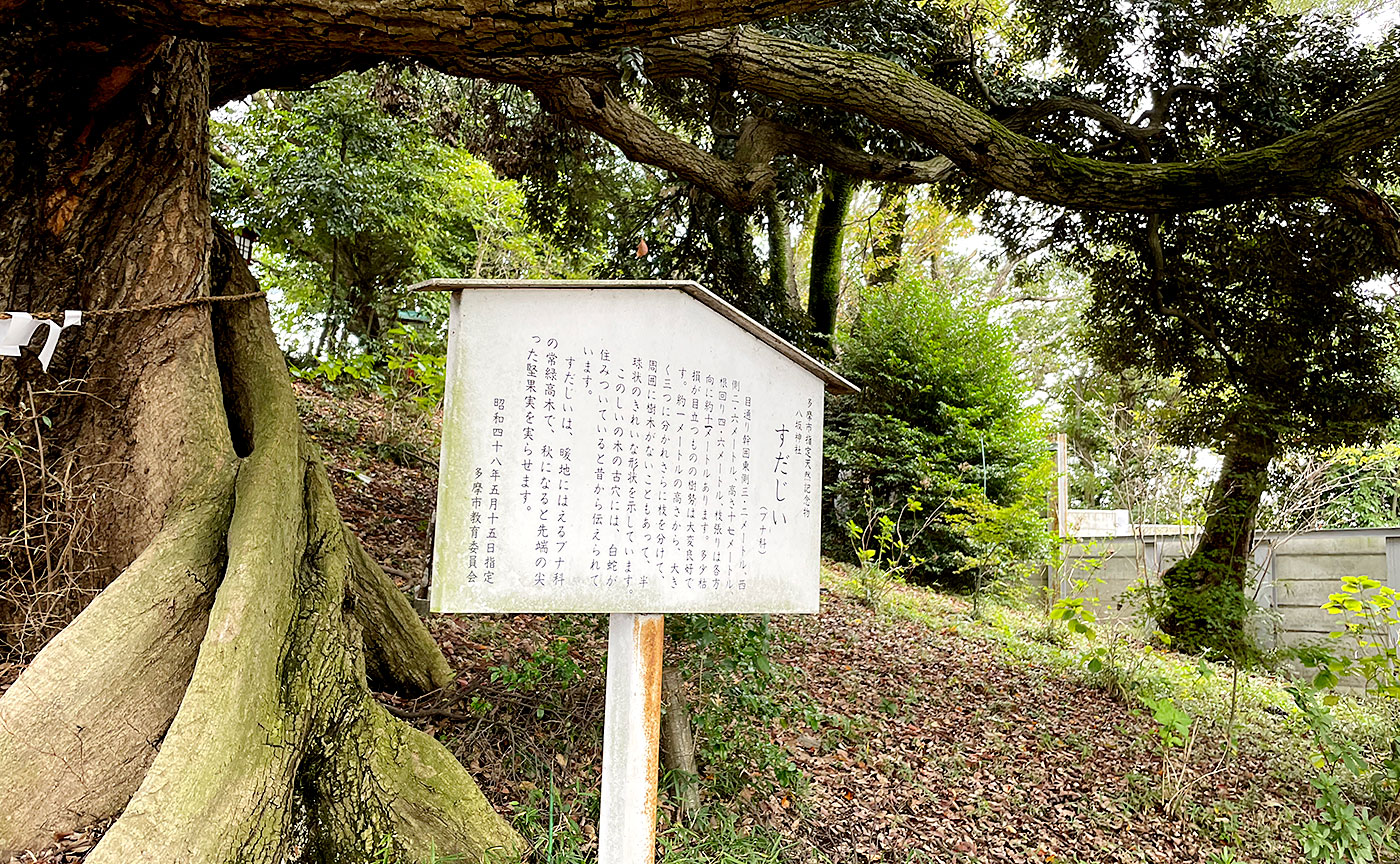 多摩市指定天然記念物
八坂神社
すだじい
(ブナ科)
目通り幹囲東側三・二メートル、西
側二・六メートル、高さ十七メートル、
根回り四・六メートル、枝張りは各方
向に約十一メートルあります。多少枯
損が目立つものの樹勢は大変良好で
す。約一メートルの高さから、大き
く三つに分かれさらに枝を分けて、
周囲に樹木がないこともあって、半
球状のきれいな形状を示しています。
このしいの木の古穴には、白蛇が
住みついていると昔から伝えられて
います。
すだじいは、暖地にはえるブナ科
の常緑高木で、秋になると先端の尖
った堅果実を実らせます。
昭和四十八年五月十五日指定
多摩市教育委員会